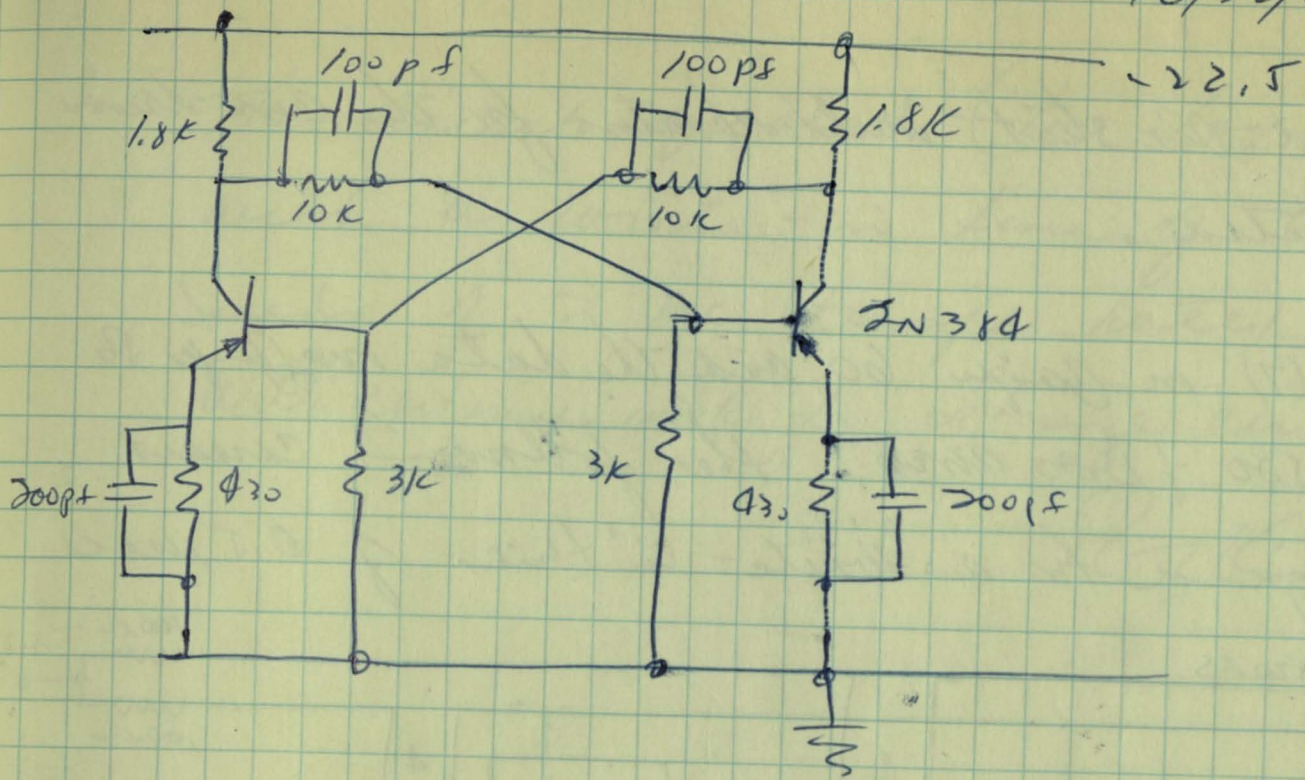 100pf
100pf
-22.5
1.8K
1.8K
10K
10K
2N384
200pf
430
3K
3K
430
200pf